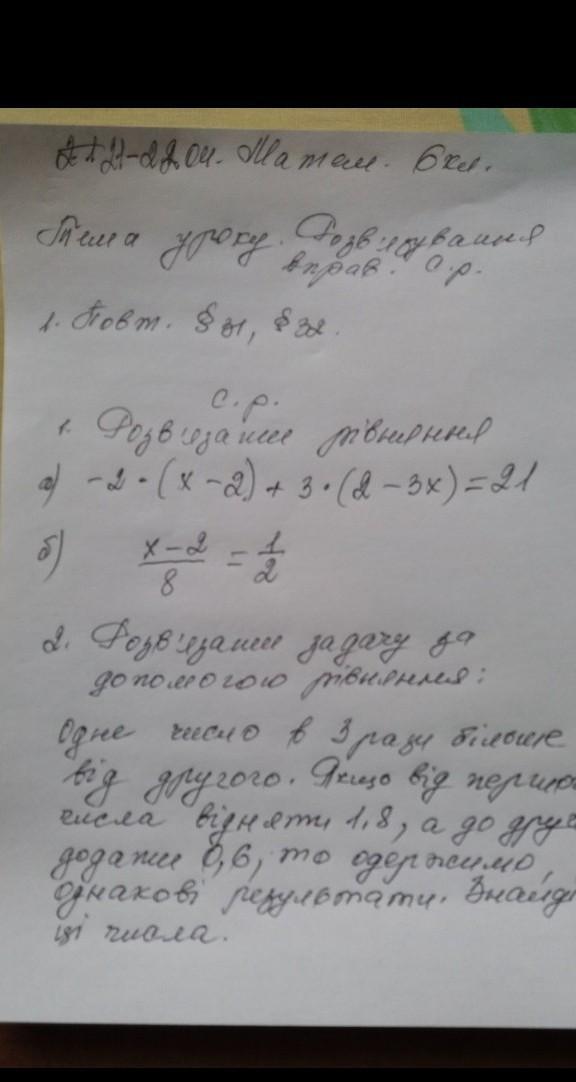 21-22.04. Матем. 6 кл.
Тема уроку. Розв'язування
вправ. С.р.
1. Повт. § 31, § 32.
С.р.
1. Розв'язати рівняння
а) -2 · (x - 2) + 3 · (2 - 3x) = 21
б) x-2/8 = 1/2
2. Розв'язати задачу за
допомогою рівняння:
Одне число в 3 рази більше
від другого. Якщо від першо
числа відняти 1,8, а до друг
додати 0,6, то одержимо
однакові результати. Знайді
ці числа.